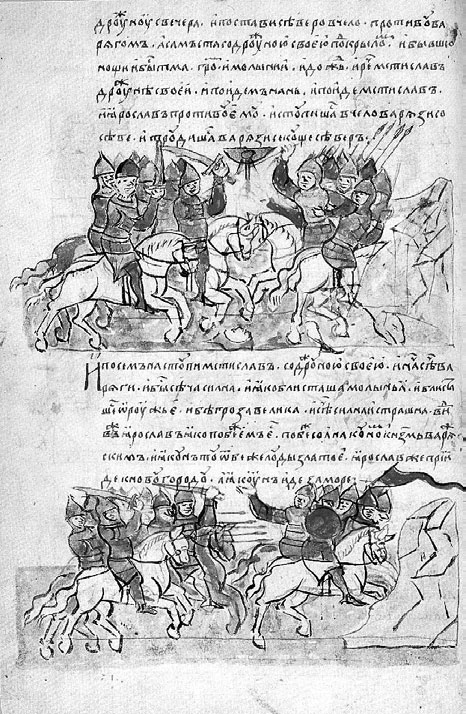 дроужиноу свечера, и постави северо в чело противоу ва
рягом, а сам ста со дроужиною своею по крылом. и бывши
нощи и бысть тма. гром и молнии. и дождь. и рече мстислав
дроужине своей. и пойдем на нь. и пойде мстислав.
и ярослав противоу емоу. и стоупиша в чело варязи со
севе. и троудиша варязи секоуще север.
И посем настоупи мстислав. со дроужиною своею. и на ся ва
ряги. и бысть сеча силна. и яко блисташа молньи. и блисташе
ся ороужье. и бе гроза велика. и сеча силна и страшна. ви
дев ярослав яко победим е. побеже со якоуном кнзм варя
ским. и якоун тоу отбеже лоуды златое. ярослав же прии
де к новоугородоу. а якоун иде за море.